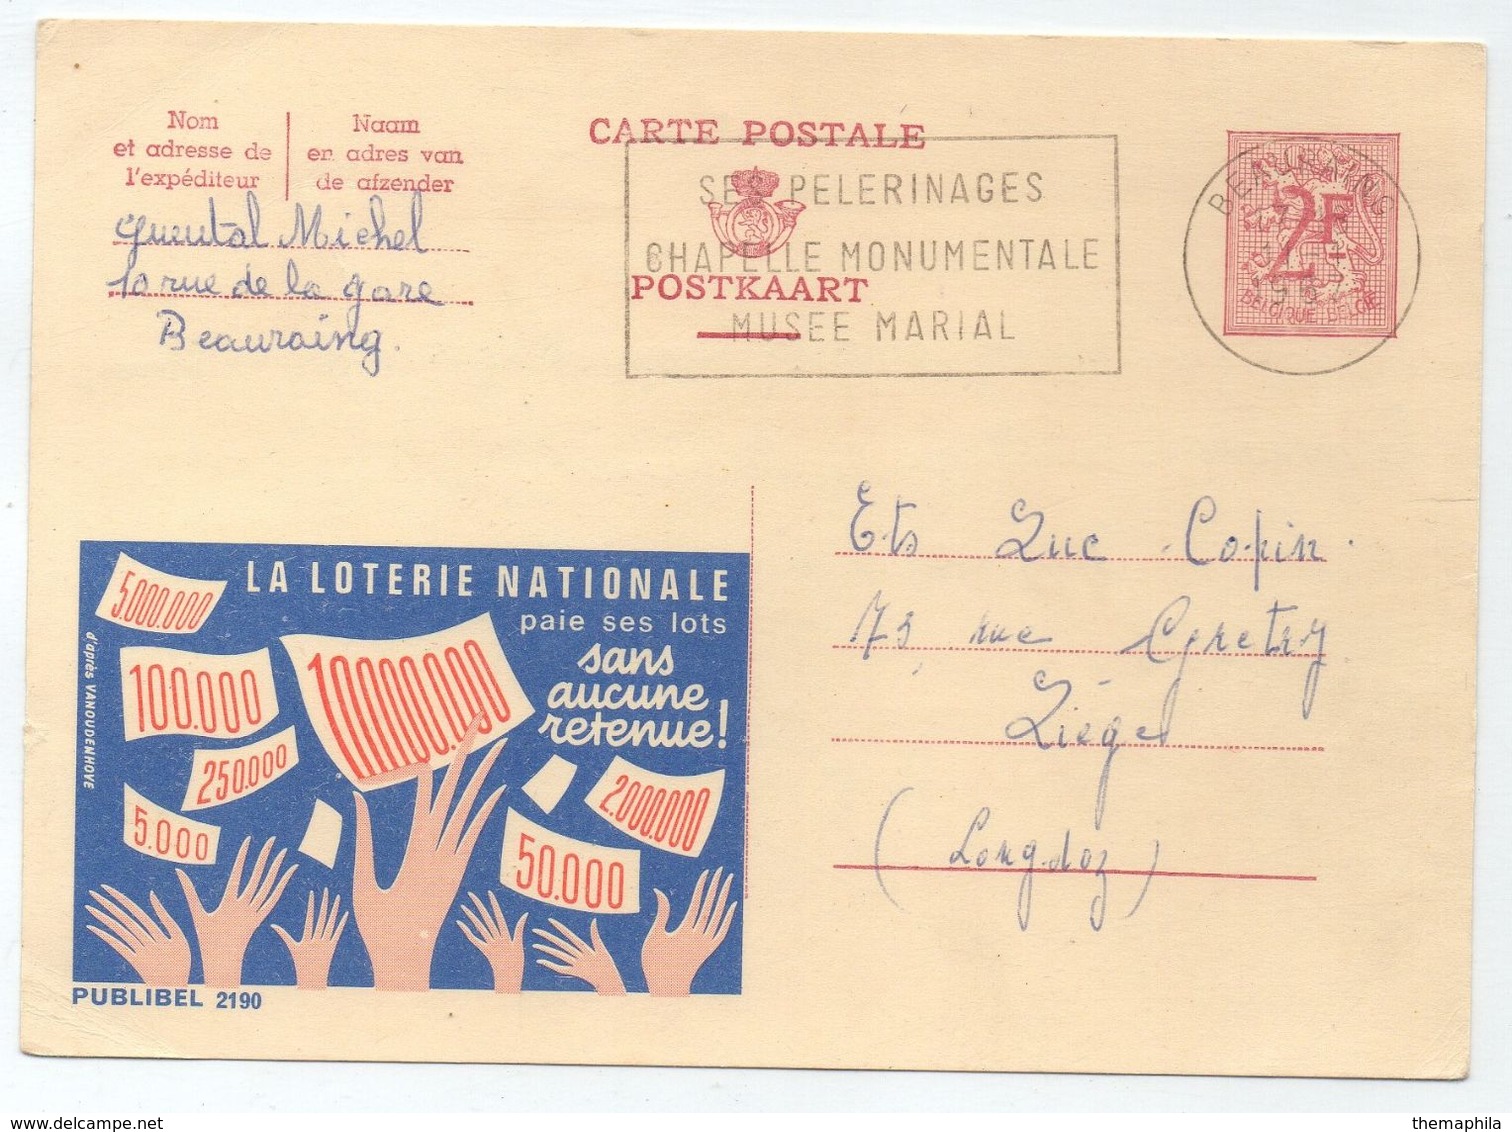 Nom
et adresse de
l'expéditeur
Naam
en adres van
de afzender
Michel
10 rue de la gare
Beauraing.
CARTE POSTALE
POSTKAART
SES PELERINAGES
CHAPELLE MONUMENTALE
MUSEE MARIAL
BEAURAING
2F
BELGIQUE-BELGIE
Ets Luc Copin.
73 rue Gretry
Liège
(Longdoz)
LA LOTERIE NATIONALE
paie ses lots
sans
aucune
retenue!
5.000.000
100.000
10.000.000
250.000
5.000
2.000.000
50.000
d'après VANOUDENHOVE
PUBLIBEL 2190
themaphila